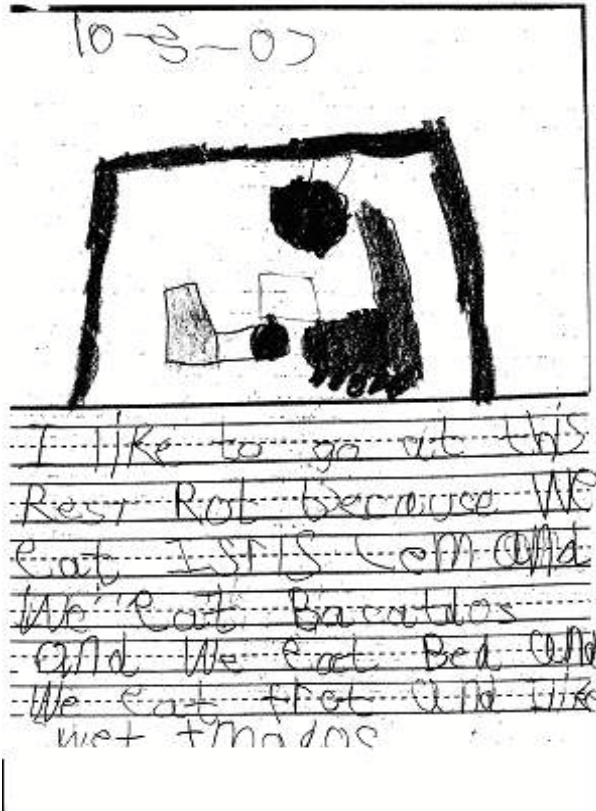 10-3-07
I like to go at this
Rest Rot becauye We
eat ISrIS Cem aNd
We eat Baratdos
and We eat Bed and
We eat frot and like
wet tmados